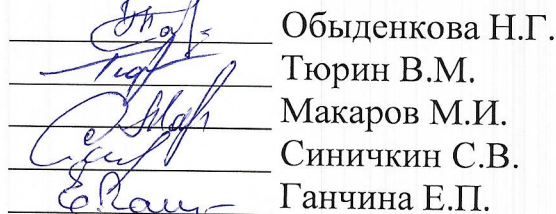 Обыденкова Н.Г.
Тюрин В.М.
Макаров М.И.
Синичкин С.В.
Ганчина Е.П.